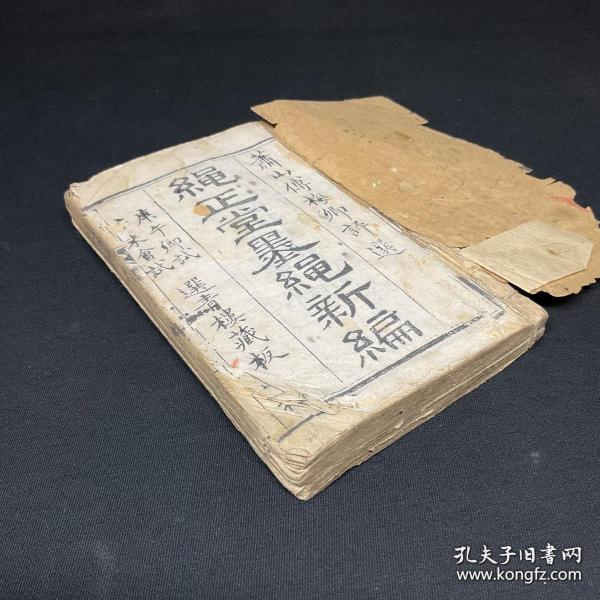 蕭山傅梅卿評選
繩正堂墨繩新編
庚午鄉試
未會試
選青樓藏板
孔夫子旧書网
www.kongfz.com